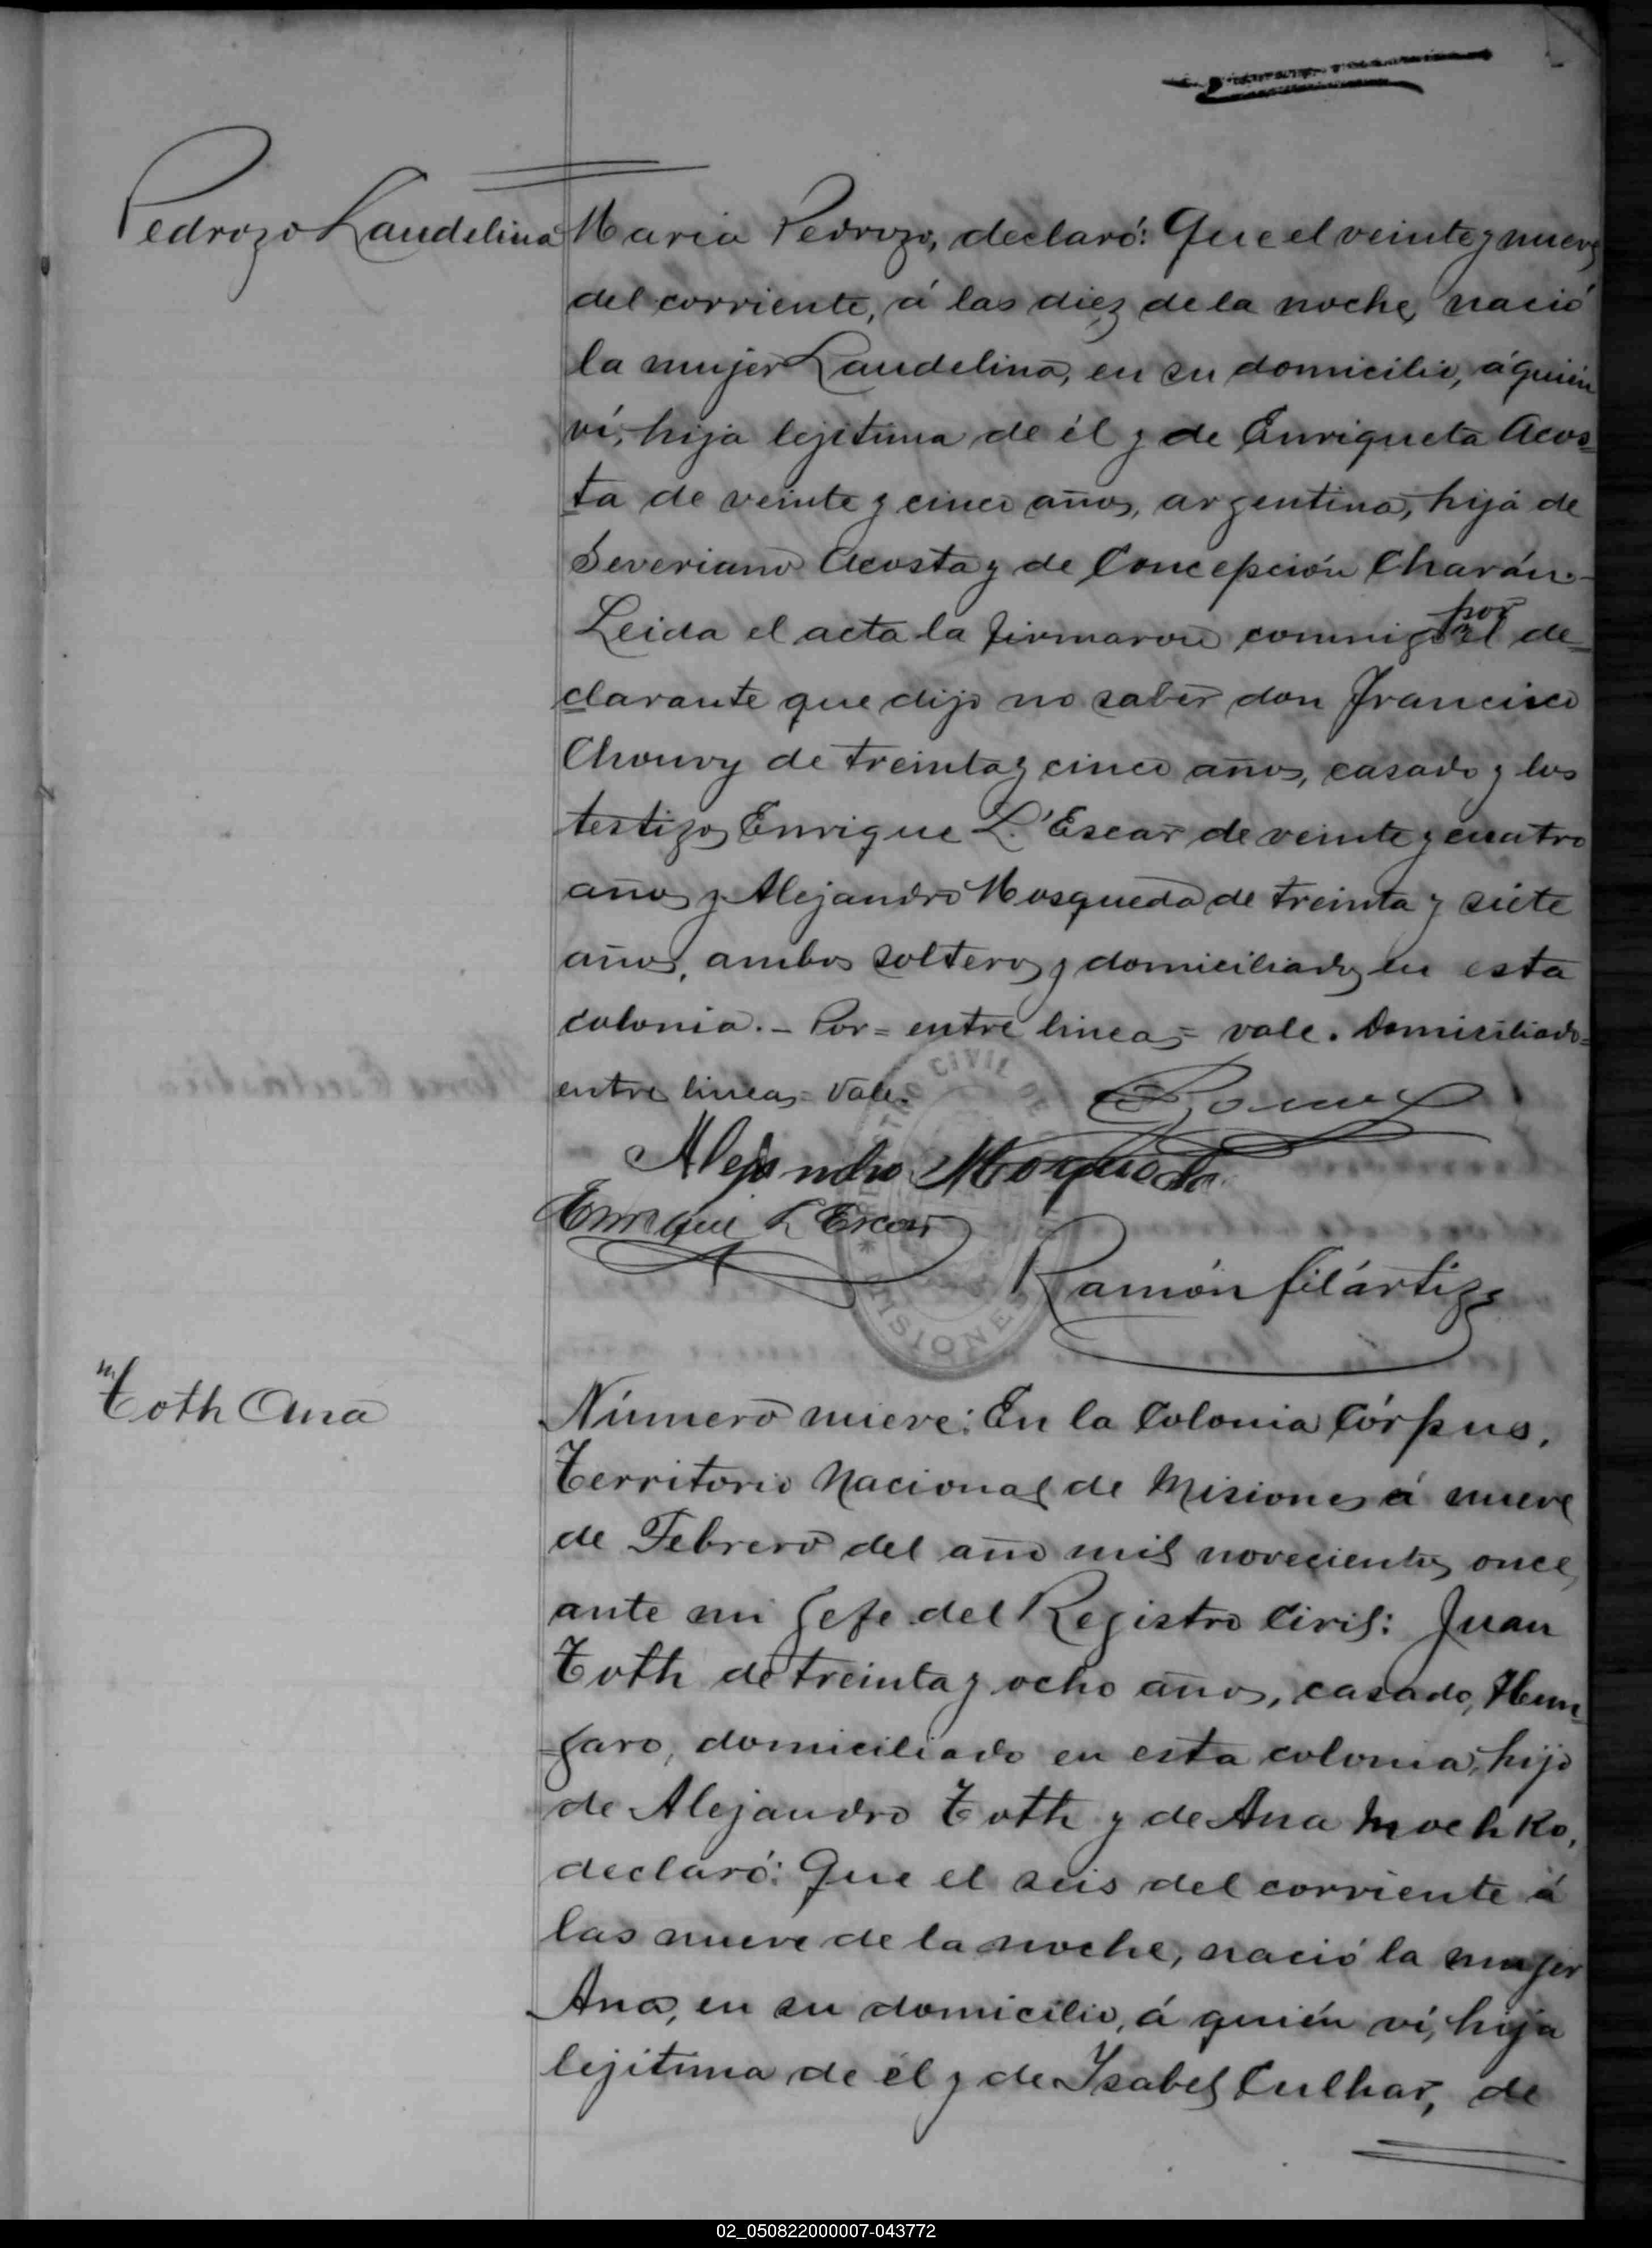 Pedrozo Laudelina
Maria Pedrozo, declaró: Que el veinte y nueve
del corriente, á las diez de la noche, nació
la mujer Laudelina, en su domicilio, á quién
ví, hija lejitima de él y de Enriqueta Acos=
ta de veinte y cinco años, argentina, hija de
Severiano Acosta y de Concepción Charán.-
Leida el acta la firmaron conmigo por el de=
clarante que dijo no saber don Francisco
Chouvy de treinta y cinco años, casado y los
testigos Enrique L'Escar de veinte y cuatro
años y Alejandro Mosqueda de treinta y siete
años, ambos solteros y domiciliados en esta
colonia.- Por= entre lineas= vale. Domiciliado=
entre lineas= vale.
Alejandro Mosqueda
Enrique L'Escar
Ramón filártiga
REGISTRO CIVIL DE
MISIONES
Toth Ana
Número nueve: En la Colonia Córpus,
Territorio Nacional de Misiones á nueve
de Febrero del año mil novecientos once,
ante mi Gefe del Registro Civil: Juan
Toth de treinta y ocho años, casado, Hun=
garo, domiciliado en esta colonia, hijo
de Alejandro Toth y de Ana Mochko,
declaró: Que el seis del corriente á
las nueve de la noche, nació la mujer
Ana, en su domicilio, á quién ví, hija
lejitima de él y de Isabel Culhar, de
02_050822000007-043772